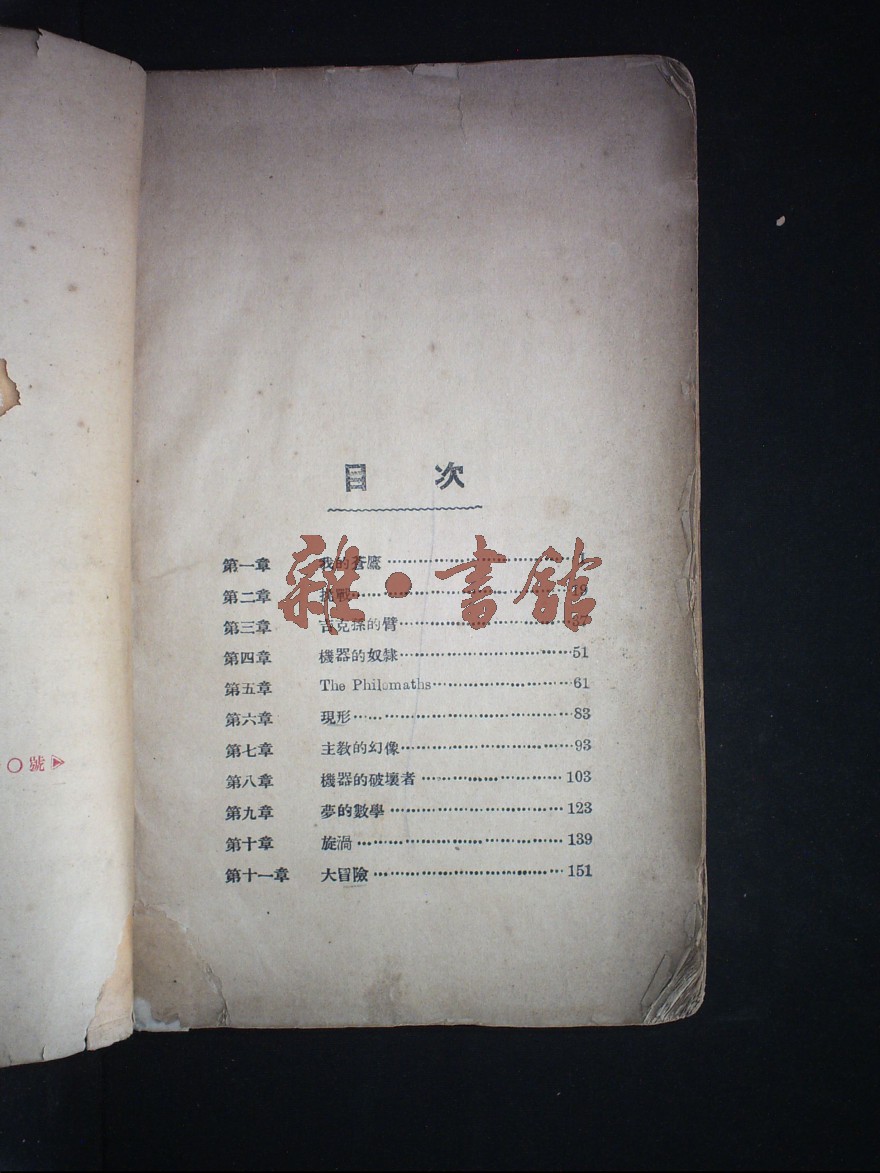 目 次
第一章 我的蒼鷹 1
第二章 挑戰 19
第三章 吉克孫的臂 37
第四章 機器的奴隸 51
第五章 The Philomaths 61
第六章 現形 83
第七章 主教的幻像 93
第八章 機器的破壞者 103
第九章 夢的數學 123
第十章 旋渦 139
第十一章 大冒險 151
〇號
雜·書館